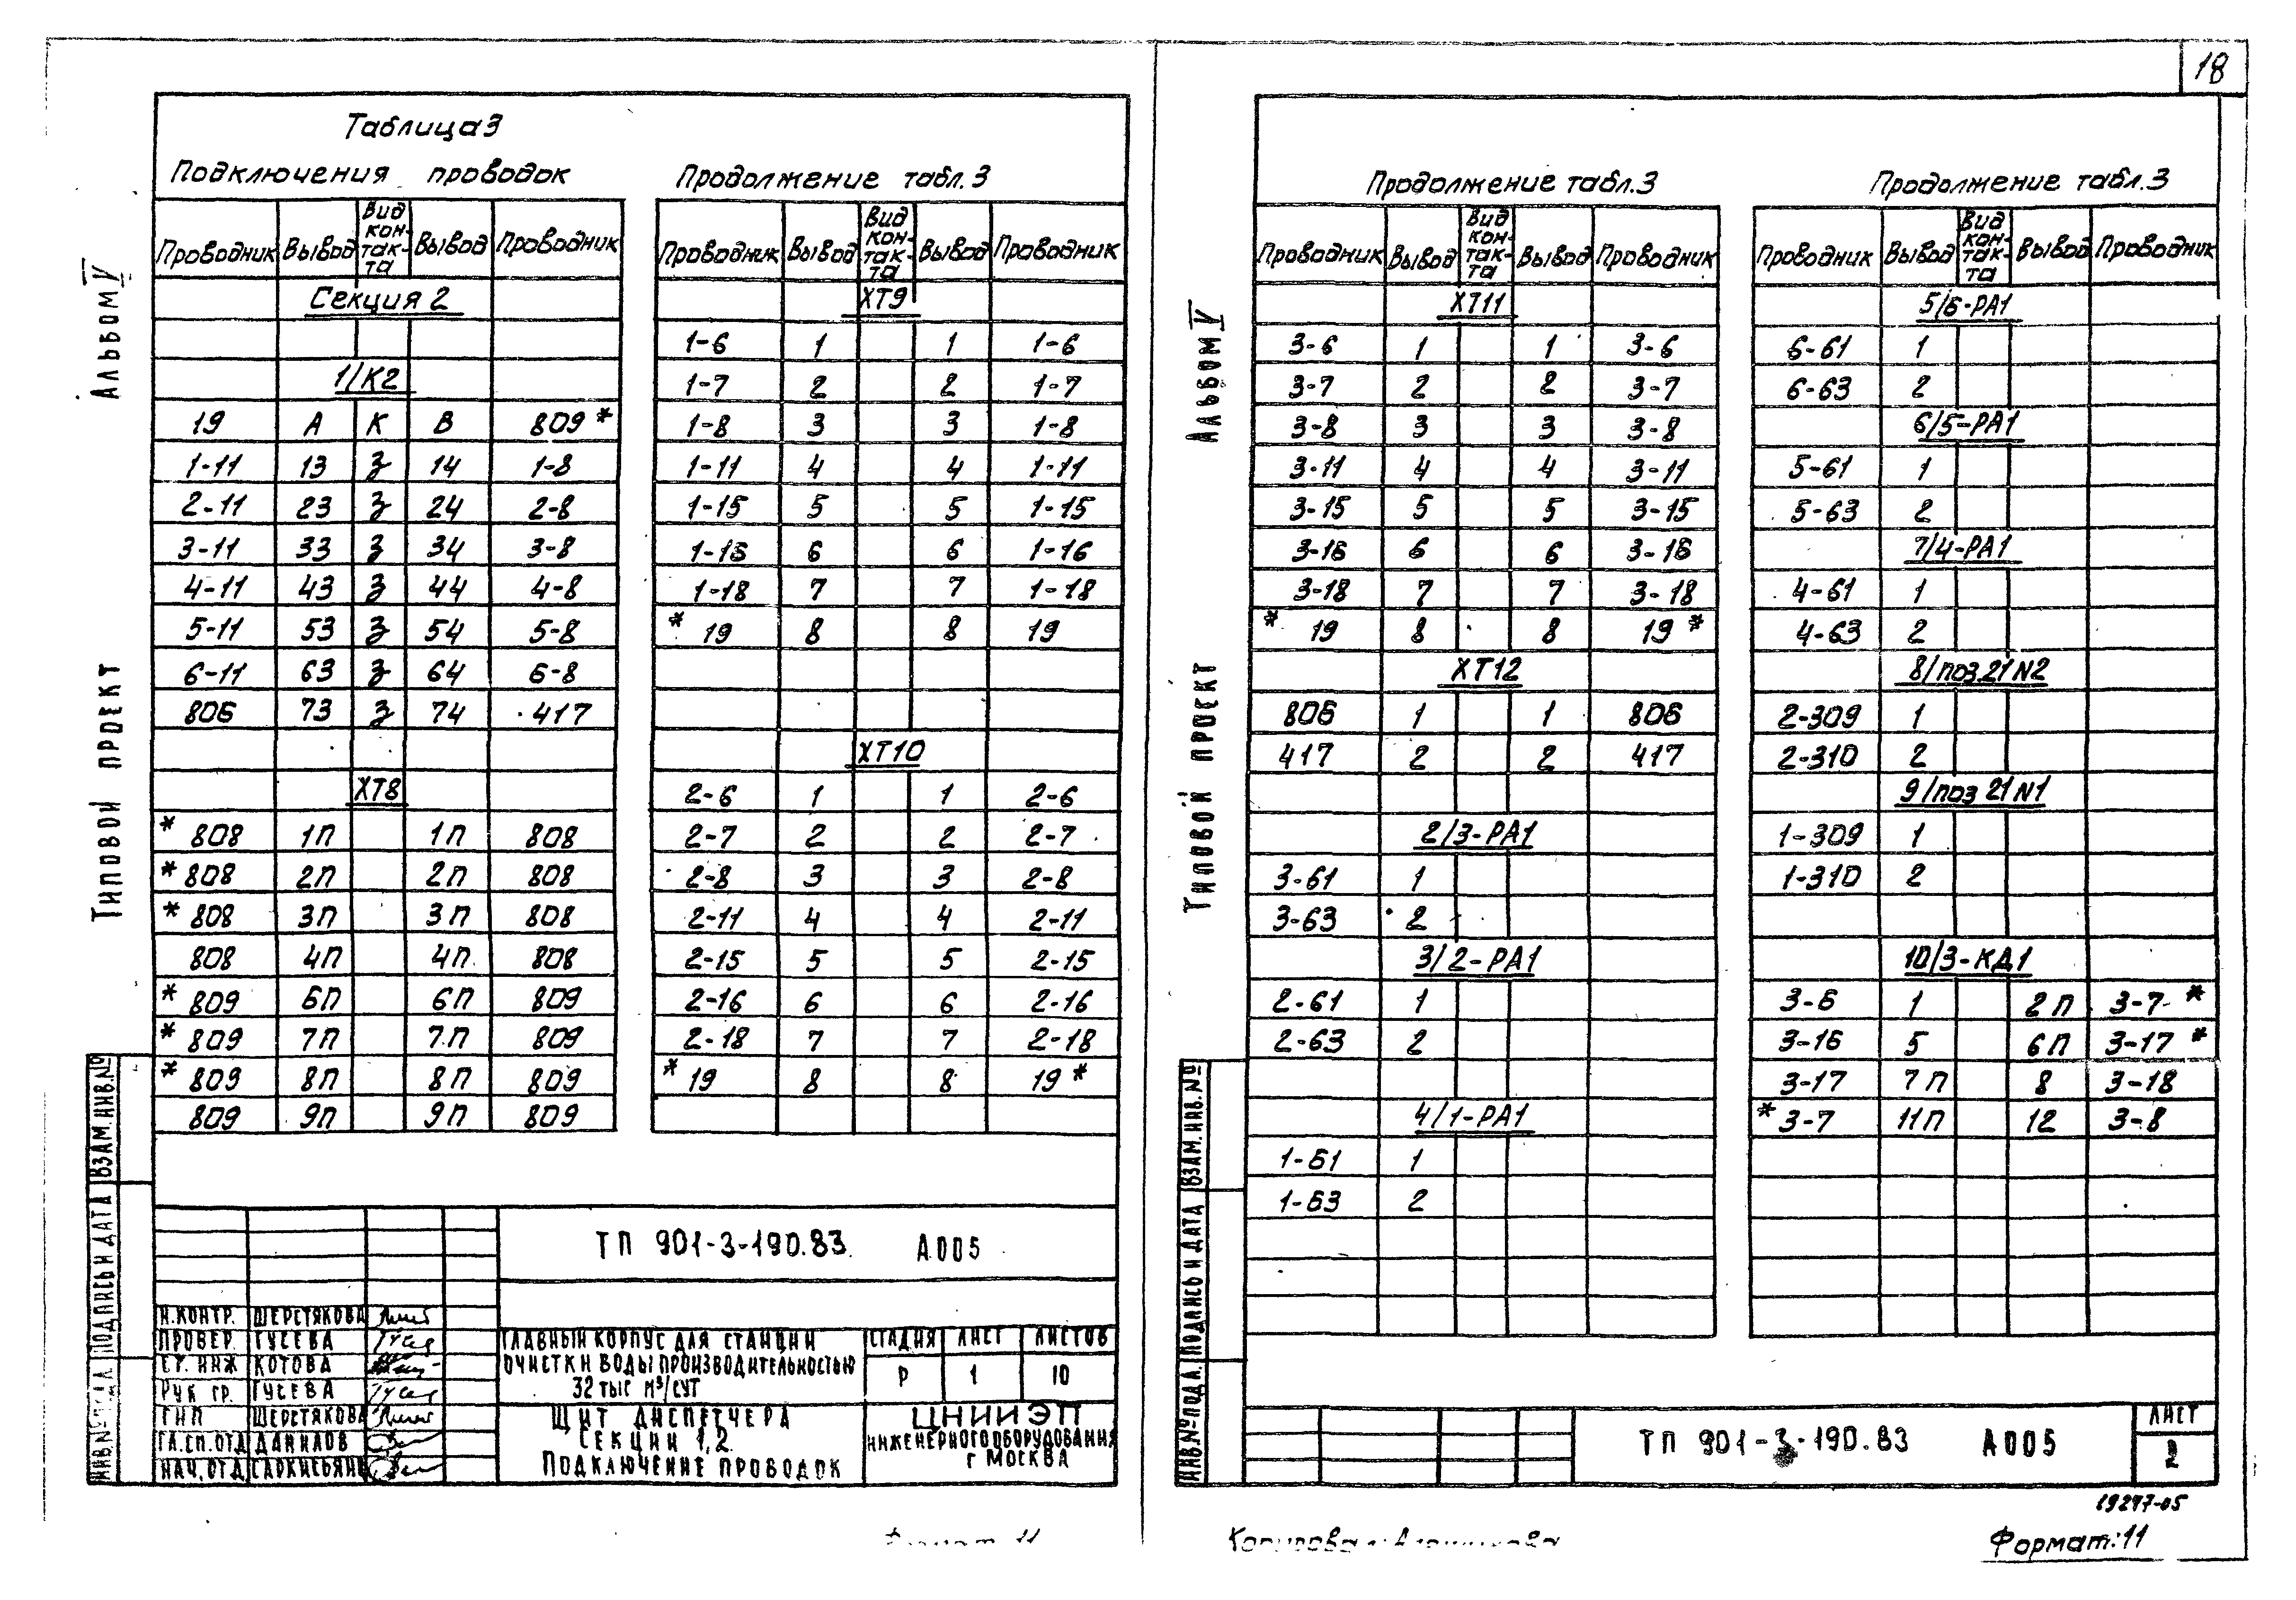 18
Альбом V
Типовой проект
Таблица 3
Подключения проводок
Проводник Вывод Вид контакта Вывод Проводник
Секция 2
1/К2
19 А К В 809 *
1-11 13 З 14 1-8
2-11 23 З 24 2-8
3-11 33 З 34 3-8
4-11 43 З 44 4-8
5-11 53 З 54 5-8
6-11 63 З 64 6-8
806 73 З 74 417
ХТ8
* 808 1П 1П 808
* 808 2П 2П 808
* 808 3П 3П 808
808 4П 4П 808
* 809 6П 6П 809
* 809 7П 7П 809
* 809 8П 8П 809
809 9П 9П 809
Продолжение табл. 3
Проводник Вывод Вид контакта Вывод Проводник
ХТ9
1-6 1 1 1-6
1-7 2 2 1-7
1-8 3 3 1-8
1-11 4 4 1-11
1-15 5 5 1-15
1-16 6 6 1-16
1-18 7 7 1-18
* 19 8 8 19
ХТ10
2-6 1 1 2-6
2-7 2 2 2-7
2-8 3 3 2-8
2-11 4 4 2-11
2-15 5 5 2-15
2-16 6 6 2-16
2-18 7 7 2-18
* 19 8 8 19 *
ТП 901-3-190.83 А005
Н.КОНТР. ШЕРСТЯКОВА
ПРОВЕР. ГУСЕВА
СТ. ИНЖ КОТОВА
РУК ГР. ГУСЕВА
ГИП ШЕРСТЯКОВА
ГЛ.СП.ОТД ДАНИЛОВ
НАЧ.ОТД
ГЛАВНЫЙ КОРПУС ДЛЯ СТАНЦИИ
ОЧИСТКИ ВОДЫ ПРОИЗВОДИТЕЛЬНОСТЬЮ
32 ТЫС М³/СУТ
СТАДИЯ ЛИСТ ЛИСТОВ
Р 1 10
ЩИТ ДИСПЕТЧЕРА
СЕКЦИИ 1,2.
ПОДКЛЮЧЕНИЕ ПРОВОДОК
ЦНИИЭП
ИНЖЕНЕРНОГО ОБОРУДОВАНИЯ
Г МОСКВА
ИНВ.№ ПОДЛ. ПОДПИСЬ И ДАТА ВЗАМ.ИНВ.№
Альбом V
Типовой проект
Продолжение табл. 3
Проводник Вывод Вид контакта Вывод Проводник
ХТ11
3-6 1 1 3-6
3-7 2 2 3-7
3-8 3 3 3-8
3-11 4 4 3-11
3-15 5 5 3-15
3-16 6 6 3-16
3-18 7 7 3-18
* 19 8 8 19 *
ХТ12
806 1 1 806
417 2 2 417
2/3-РА1
3-61 1
3-63 2
3/2-РА1
2-61 1
2-63 2
4/1-РА1
1-61 1
1-63 2
Продолжение табл. 3
Проводник Вывод Вид контакта Вывод Проводник
5/6-РА1
6-61 1
6-63 2
6/5-РА1
5-61 1
5-63 2
7/4-РА1
4-61 1
4-63 2
8/поз.21 N2
2-309 1
2-310 2
9/поз 21 N1
1-309 1
1-310 2
10/3-КД1
3-6 1 2П 3-7 *
3-16 5 6П 3-17 *
3-17 7П 8 3-18
* 3-7 11П 12 3-8
ИНВ.№ ПОДЛ. ПОДПИСЬ И ДАТА ВЗАМ.ИНВ.№
ТП 901-3-190.83 А005
ЛИСТ
2
19247-05
Формат:11